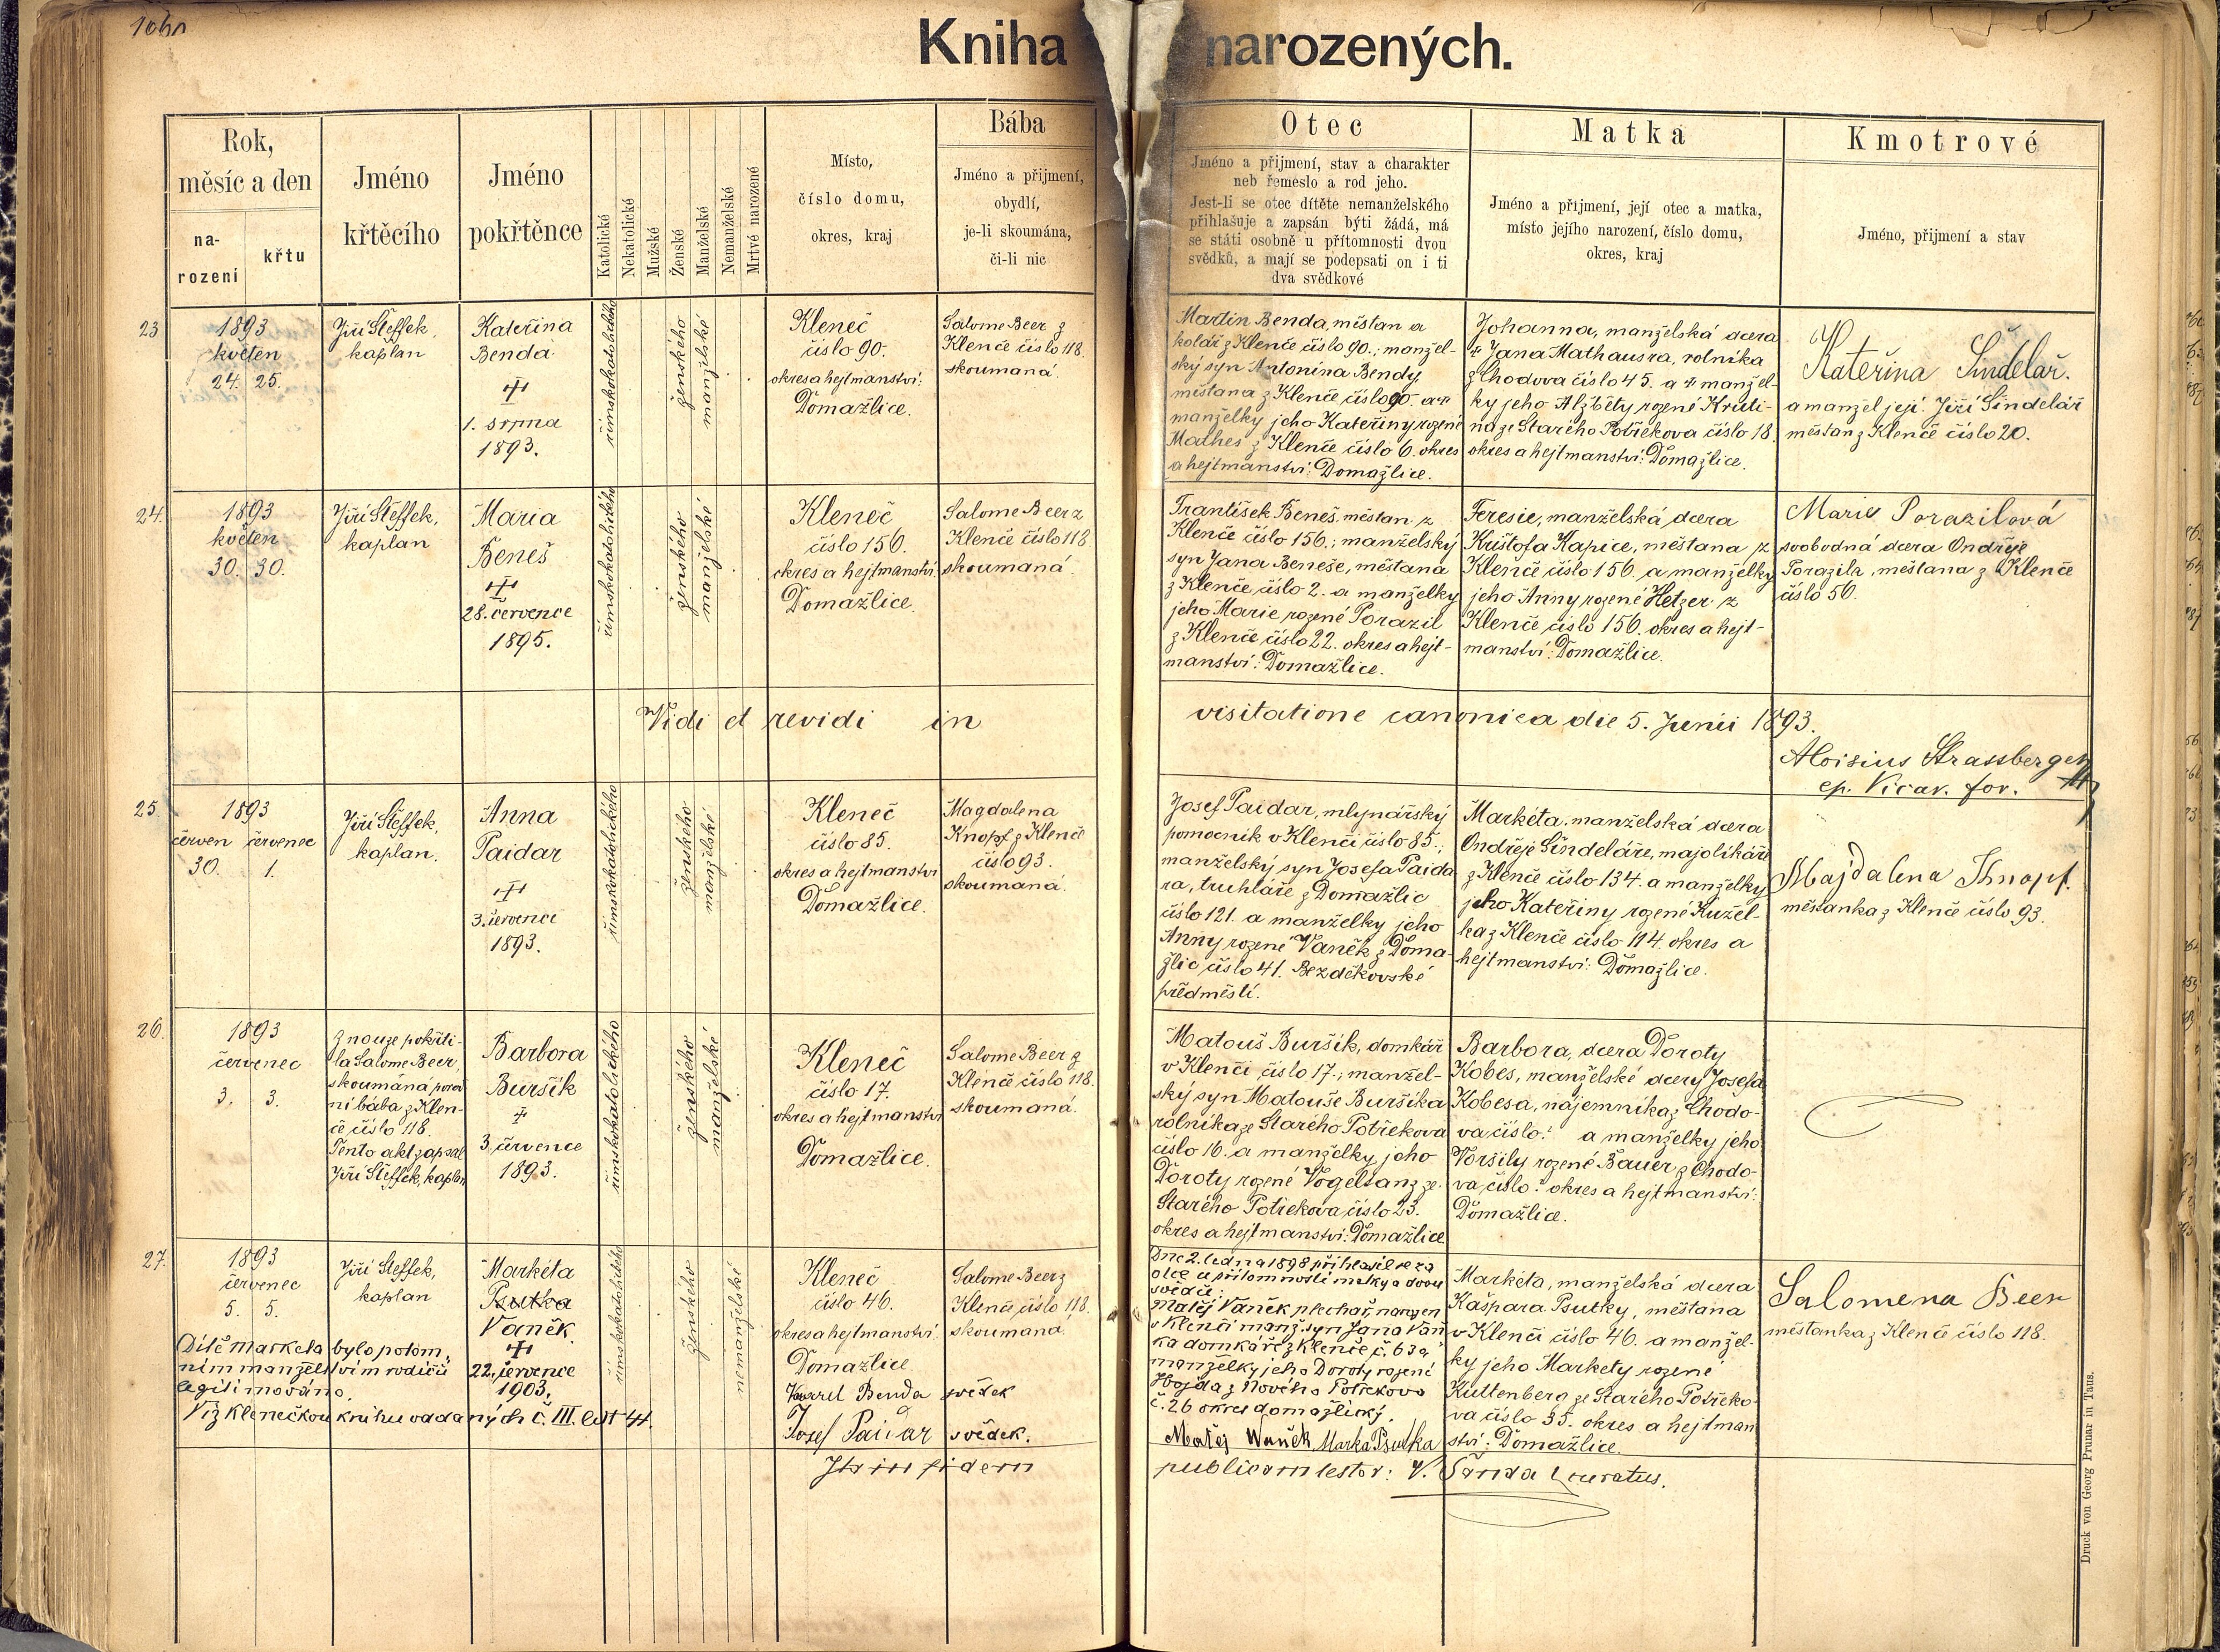 Kniha narozených.
Rok,
měsíc a den
na-
rození
křtu
Jméno
křtěcího
Jméno
pokřtěnce
Katolické
Nekatolické
Mužské
Ženské
Manželské
Nemanželské
Mrtvé narozené
Místo,
číslo domu,
okres, kraj
Bába
Jméno a přijmení,
obydlí,
je-li skoumána,
či-li nic
Otec
Jméno a přijmení, stav a charakter
neb řemeslo a rod jeho.
Jest-li se otec dítěte nemanželského
přihlašuje a zapsán býti žádá, má
se státi osobně u přítomnosti dvou
svědků, a mají se podepsati on i ti
dva svědkové
Matka
Jméno a přijmení, její otec a matka,
místo jejího narození, číslo domu,
okres, kraj
Kmotrové
Jméno, přijmení a stav
23
1893
květen
24. 25.
Jiří Šteffek,
kaplan
Kateřina
Benda
1. srpna
1893.
římskokatolického
ženského
manželské
Kleneč
číslo 90.
okres a hejtmanství:
Domažlice.
Salome Beer z
Klenče číslo 118.
skoumaná.
Martin Benda, měšťan a
kolář z Klenče číslo 90.; manžel-
ský syn Antonína Bendy,
měšťana z Klenče číslo 90. a
manželky jeho Kateřiny rozené
Mathes z Klenče číslo 6. okres
a hejtmanství: Domažlice.
Johanna, manželská dcera
Jana Mathausra, rolníka
z Chodova číslo 45. a manžel-
ky jeho Alžběty rozené Kruti-
na ze Starého Potřekova číslo 18.
okres a hejtmanství: Domažlice.
Kateřina Šindelář.
a manžel její: Jiří Šindelář
měšťan z Klenče číslo 20.
24.
1893
květen
30. 30.
Jiří Šteffek,
kaplan
Maria
Beneš
28. července
1895.
římskokatolického
ženského
manželské
Kleneč
číslo 156.
okres a hejtmanství
Domažlice.
Salome Beer z
Klenče číslo 118
skoumaná.
František Beneš, měšťan z
Klenče číslo 156.; manželský
syn Jana Beneše, měšťana
z Klenče číslo 2. a manželky
jeho Marie rozené Porazil
z Klenče číslo 22. okres a hejt-
manství: Domažlice.
Teresie, manželská dcera
Krištofa Kapice, měšťana z
Klenče číslo 156. a manželky
jeho Anny rozené Hetzer z
Klenče číslo 156. okres a hejt-
manství: Domažlice.
Marie Porazilová
svobodná dcera Ondřeje
Porazila, měšťana z Klenče
číslo 56.
Vidi et revidi in visitatione canonica die 5. Junii 1893.
Aloisius Strassberger
ep. Vicar. for.
25.
1893
červen červenec
30. 1.
Jiří Šteffek,
kaplan.
Anna
Paidar
3. července
1893.
římskokatolického
ženského
manželské
Kleneč
číslo 85.
okres a hejtmanství
Domažlice.
Magdalena
Knopf z Klenče
číslo 93.
skoumaná.
Josef Paidar, mlynářský
pomocník v Klenči číslo 85.;
manželský syn Josefa Paida
ra, truhláře z Domažlic
číslo 121. a manželky jeho
Anny rozené Vaněk z Doma-
žlic číslo 41. Bezděkovské
předměstí.
Markéta, manželská dcera
Ondřeje Šindeláře, majolikáře
z Klenče číslo 134. a manželky
jeho Kateřiny rozené Kužel-
ka z Klenče číslo 114. okres a
hejtmanství: Domažlice.
Majdalena Knopf.
měšťanka z Klenče číslo 93.
26.
1893
červenec
3. 3.
Z nouze pokřti-
la Salome Beer,
skoumána porod
ní bába z Klen-
če číslo 118.
Tento akt zapsal
Jiří Šteffek, kaplan
Barbora
Buršík
3. července
1893.
římskokatolického
ženského
manželské
Kleneč
číslo 17.
okres a hejtmanství
Domažlice.
Salome Beer z
Klenče číslo 118.
skoumaná.
Matouš Buršík, domkář
v Klenči číslo 17.; manžel-
ský syn Matouše Buršíka
rolníka ze Starého Potřekova
číslo 16. a manželky jeho
Doroty rozené Vogeltanz ze
Starého Potřekova číslo 23.
okres a hejtmanství: Domažlice
Barbora, dcera Doroty
Kobes, manželské dcery Josefa
Kobesa, nájemníka z Chodo-
va číslo: a manželky jeho
Voršily rozené Bauer z Chodo-
va číslo: okres a hejtmanství:
Domažlice.
27.
1893
červenec
5. 5.
Jiří Šteffek,
kaplan
Markéta
Psutka
Vaněk.
22. července
1903.
Dítě Marketa bylo potom-
ním manželstvím rodičů
legitimováno.
Viz klenečkou knihu oddaných č. III. list 44.
římskokatolického
ženského
nemanželské
Kleneč
číslo 46.
okres a hejtmanství:
Domažlice
Karel Benda svědek
Josef Paidar svědek.
Salome Beer z
Klenče číslo 118.
skoumaná.
Dne 2. ledna 1898 přihlásil se za
otce u přítomnosti matky a dvou
svědků:
Matěj Vaněk, plechař, narozen
v Klenči manž. syn Jana Vaň
ka domkáře z Klenče č. 63 a
manželky jeho Doroty rozené
z Nového Potřekova
č. 26 okres domažlický.
Matěj Waněk Marka Psutka
Markéta, manželská dcera
Kašpara Psutky, měšťana
v Klenči číslo 46. a manžel-
ky jeho Markety rozené
Kuttenberg ze Starého Potřeko-
va číslo 35. okres a hejtman
ství: Domažlice.
Salomena Beer
měšťanka z Klenče číslo 118.
In fidem publicam testor: V. Šanda curatus.
Druck von Georg Prunar in Taus.